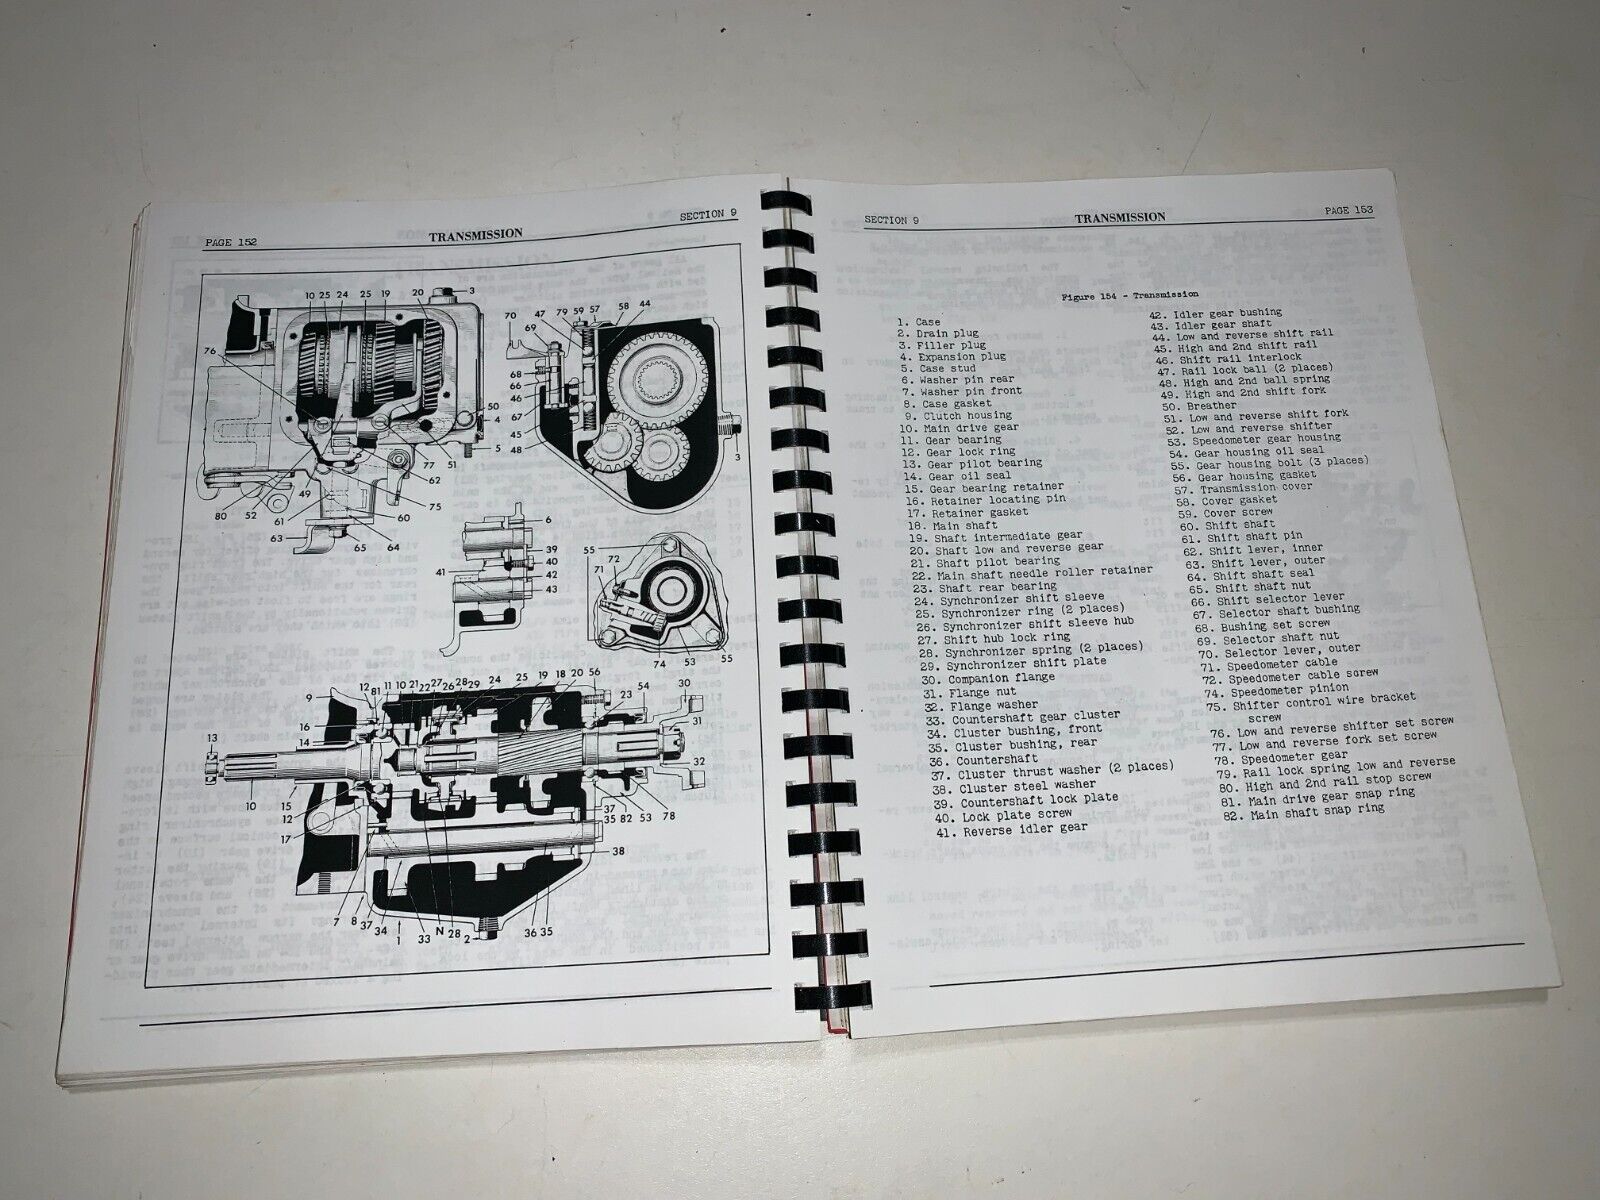 PAGE 152
TRANSMISSION
SECTION 9
10 25 24 25 19 20 3
76
50
4
5
80 52 49 61 63 65 64 60 75 62 77 51
70 47 79 59 57 58 44
69
68
66
46
67
45
48
3
6
39
40
41
42
43
55
72
71
74 53 55
9 12 81 11 10 21 22 27 26 28 29 24 25 19 18 20 56 23 54 30
16
14
13
31
32
10 15 12 17
37
35 82 53 78
38
7 8 37 34 1 33 N 28 2 36 35
SECTION 9
TRANSMISSION
PAGE 153
Figure 154 - Transmission
1. Case
2. Drain plug
3. Filler plug
4. Expansion plug
5. Case stud
6. Washer pin rear
7. Washer pin front
8. Case gasket
9. Clutch housing
10. Main drive gear
11. Gear bearing
12. Gear lock ring
13. Gear pilot bearing
14. Gear oil seal
15. Gear bearing retainer
16. Retainer locating pin
17. Retainer gasket
18. Main shaft
19. Shaft intermediate gear
20. Shaft low and reverse gear
21. Shaft pilot bearing
22. Main shaft needle roller retainer
23. Shaft rear bearing
24. Synchronizer shift sleeve
25. Synchronizer ring (2 places)
26. Synchronizer shift sleeve hub
27. Shift hub lock ring
28. Synchronizer spring (2 places)
29. Synchronizer shift plate
30. Companion flange
31. Flange nut
32. Flange washer
33. Countershaft gear cluster
34. Cluster bushing, front
35. Cluster bushing, rear
36. Countershaft
37. Cluster thrust washer (2 places)
38. Cluster steel washer
39. Countershaft lock plate
40. Lock plate screw
41. Reverse idler gear
42. Idler gear bushing
43. Idler gear shaft
44. Low and reverse shift rail
45. High and 2nd shift rail
46. Shift rail interlock
47. Rail lock ball (2 places)
48. High and 2nd ball spring
49. High and 2nd shift fork
50. Breather
51. Low and reverse shift fork
52. Low and reverse shifter
53. Speedometer gear housing
54. Gear housing oil seal
55. Gear housing bolt (3 places)
56. Gear housing gasket
57. Transmission cover
58. Cover gasket
59. Cover screw
60. Shift shaft
61. Shift shaft pin
62. Shift lever, inner
63. Shift lever, outer
64. Shift shaft seal
65. Shift shaft nut
66. Shift selector lever
67. Selector shaft bushing
68. Bushing set screw
69. Selector shaft nut
70. Selector lever, outer
71. Speedometer cable
72. Speedometer cable screw
74. Speedometer pinion
75. Shifter control wire bracket
screw
76. Low and reverse shifter set screw
77. Low and reverse fork set screw
78. Speedometer gear
79. Rail lock spring low and reverse
80. High and 2nd rail stop screw
81. Main drive gear snap ring
82. Main shaft snap ring